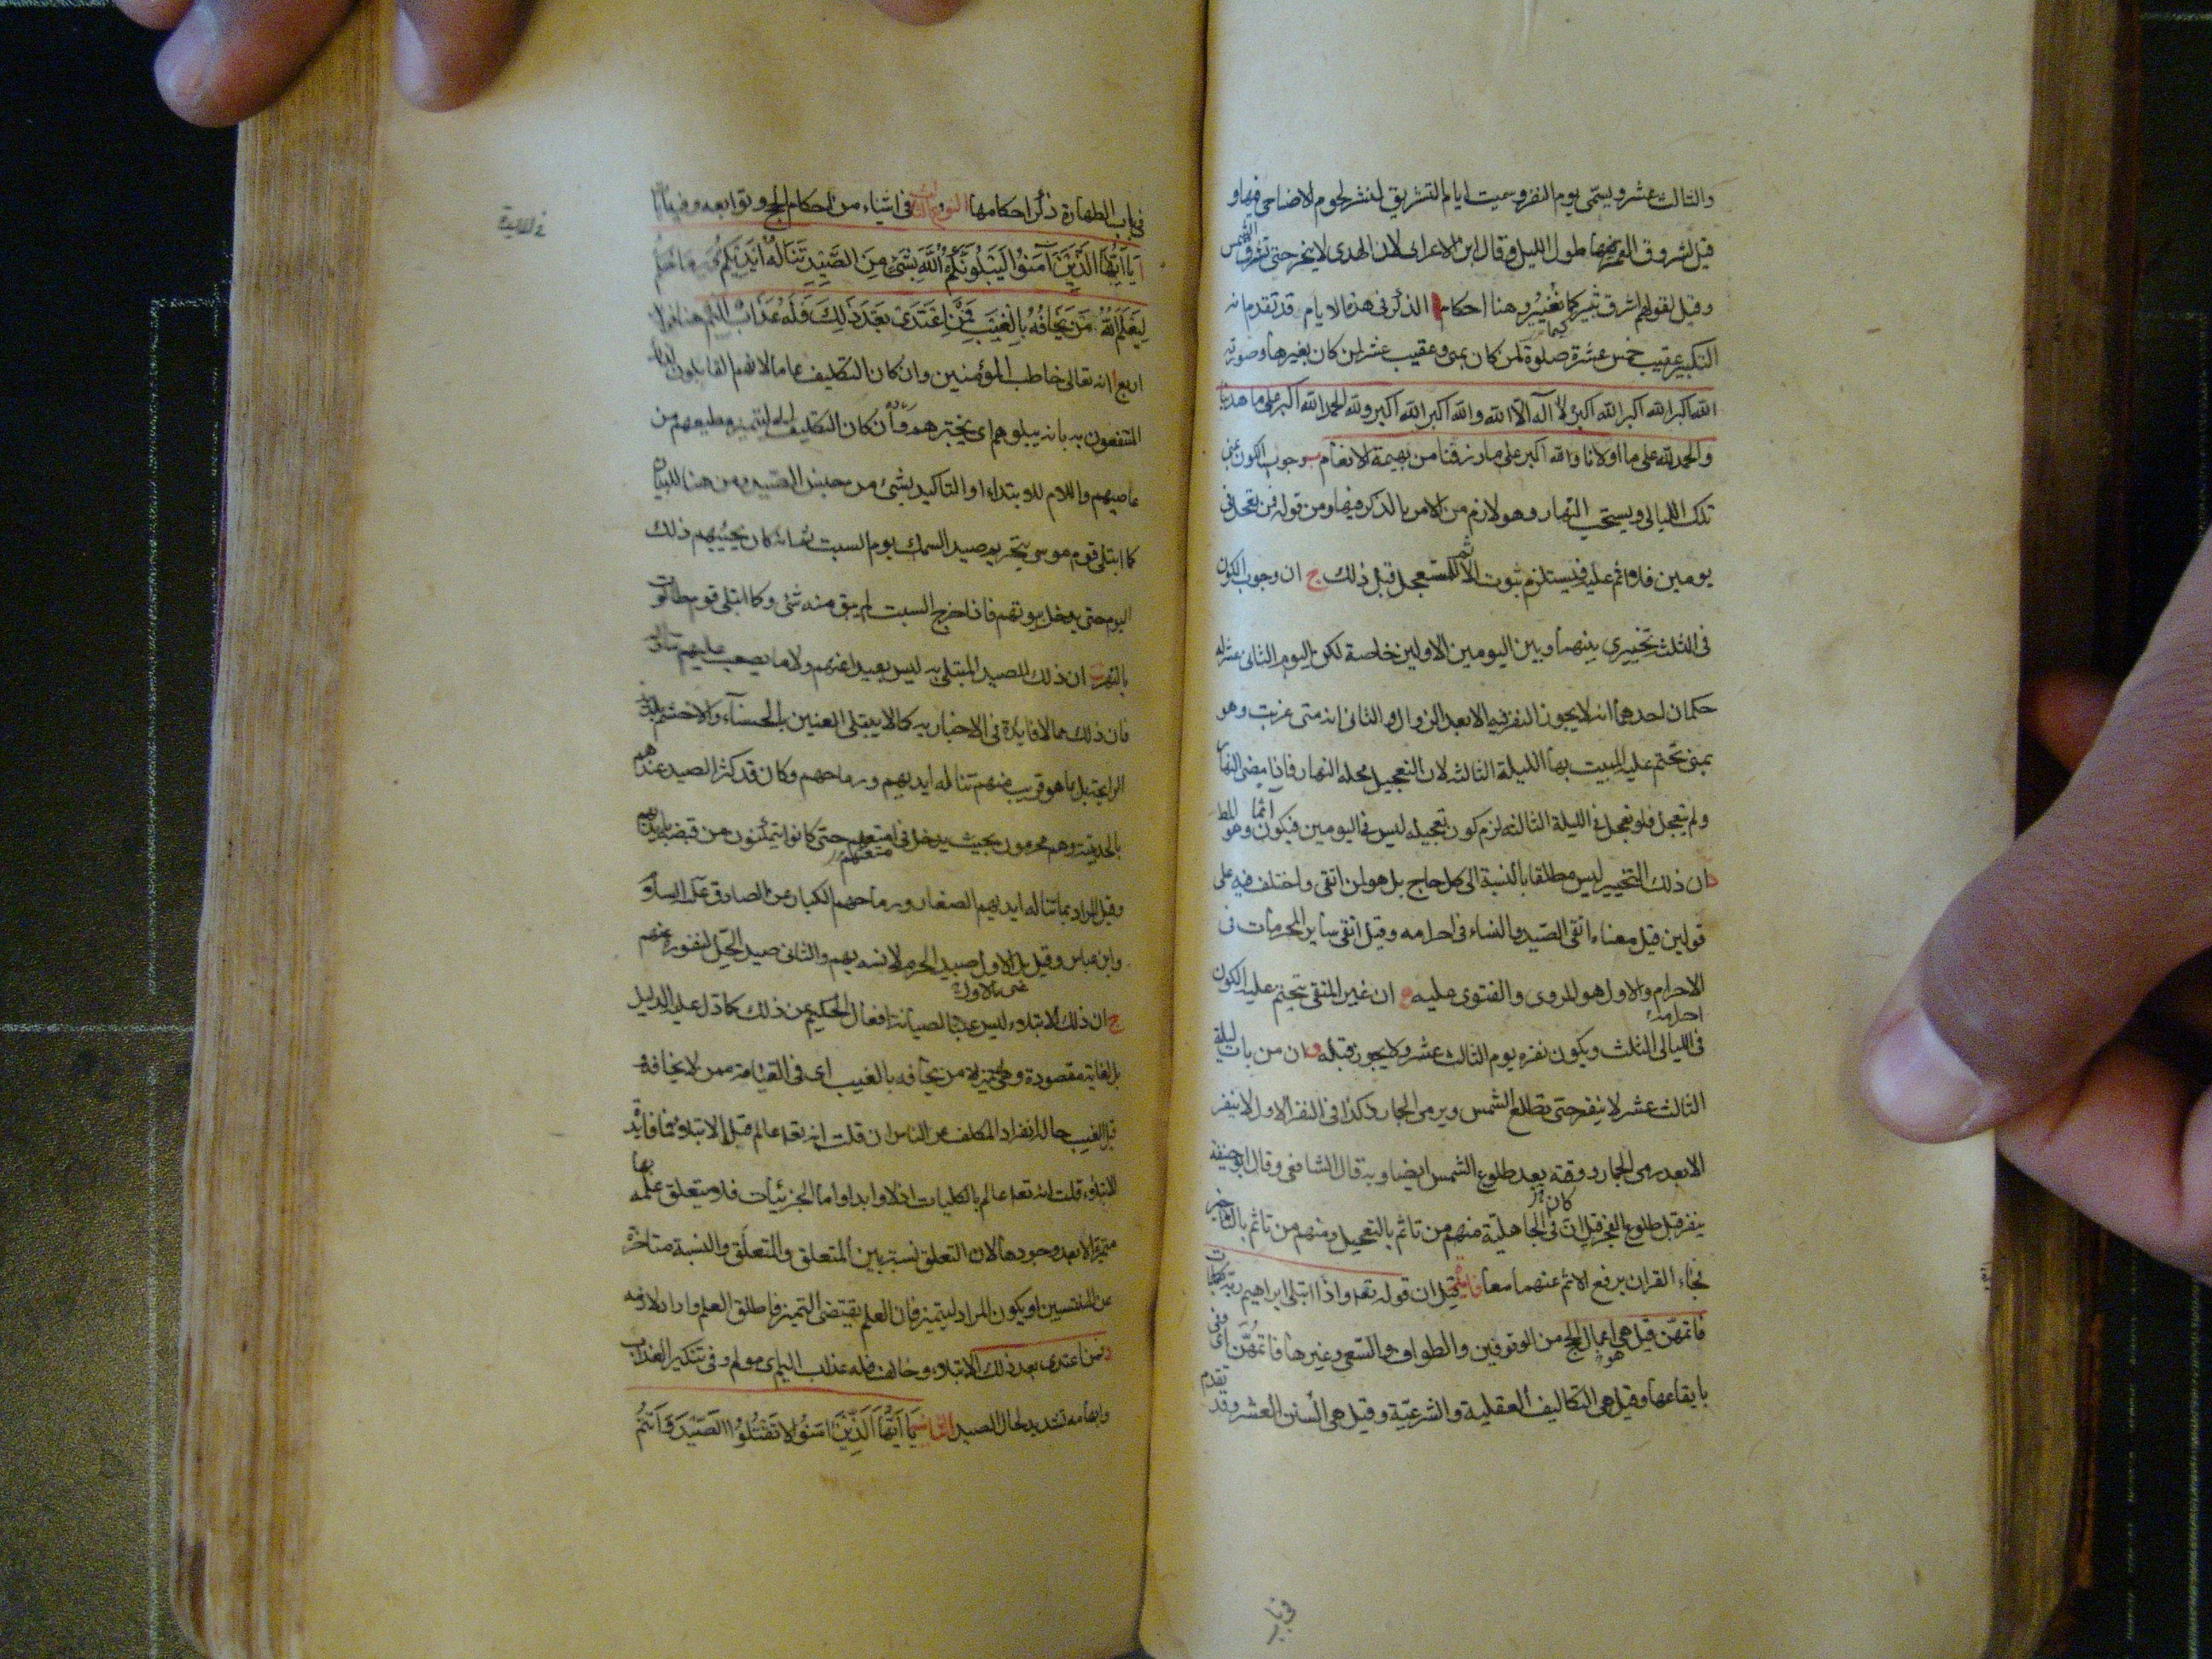 والثالث عشر ويسمى يوم النفر وسميت ايام التشريق لنشر لحوم الاضاحى فيها و
قيل لشروق القمر فيها طول الليل وقال ابن الاعرابى لان الهدى لا ينحر حتى تشرق الشمس
وقيل لقولهم اشرق ثبير كيما نغير وهنا احكام ا الذكر فى هذه الايام قد تقدم انه
التكبير عقيب خمس عشرة صلوة لمن كان بمنى وعقيب عشر لمن كان بغيرها وصورته
الله اكبر الله اكبر الله اكبر لا اله الا الله والله اكبر الله اكبر ولله الحمد الله اكبر على ما هدينا
والحمد لله على ما اولانا والله اكبر على ما رزقنا من بهيمة الانعام ب وجوب الكون بمنى
تلك الليالى ويستحب النهار وهو لازم من الامر بالذكر فيها ومن قوله فمن تعجل فى
يومين فلا اثم عليه فيستلزم ثبوت الاثم للمستعجل قبل ذلك ج ان وجوب الكون
فى الثلث تخييرى بينهما وبين اليومين الاولين خاصة لكن اليوم الثانى عشر له
حكمان احدهما انه لا يجوز النفر فيه الا بعد الزوال والثانى انه متى غربت وهو
بمنى تحتم عليه المبيت بها الليلة الثالثة لان التعجيل محله النهار فاذا مضى النهار
ولم يتعجل فلو تعجل فى الليلة الثالثة لزم كون تعجيله ليس فى اليومين فيكون آثما وهو المط
د ان ذلك التخيير ليس مطلقا بالنسبة الى كل حاج بل هو لمن اتقى واختلف فيه على
قولين قيل معناه اتقى الصيد والنساء فى احرامه وقيل اتقى ساير المحرمات فى
احرامه
الاحرام والاول هو المروى والفتوى عليه ه ان غير المتقى يتحتم عليه الكون
فى الليالى الثلث ويكون نفره يوم الثالث عشر ولا يجوز قبله و ان من بات ليلة
الثالث عشر لا ينفر حتى تطلع الشمس ويرمى الجمار وكذا فى النفر الاول لا ينفر
الا بعد رمى الجمار ووقته بعد طلوع الشمس ايضا وبه قال الشافعى وقال ابو حنيفة
ينفر قبل طلوع الفجر قيل ان كان فى الجاهلية منهم من تاثم بالتعجيل ومنهم من تاثم بالتاخير
فجاء القران برفع الاثم عنهما معا فائدة قيل ان قوله تعه واذا ابتلى ابراهيم ربه بكلمات
فاتمهن قيل هى اعمال الحج من الوقوفين والطواف والسعى وغيرها فاتمهن اى وفى
بايقاعها وقيل هى التكاليف العقلية والشرعية وقيل هى السنن العشر وقد تقدم
فى باب
فى باب الطهارة ذكر احكامها النوع الثالث فى اشياء من احكام الحج وتوابعه وفيه ايات
يا ايها الذين آمنوا ليبلونكم الله بشئ من الصيد تناله ايديكم ورماحكم
ليعلم الله من يخافه بالغيب فمن اعتدى بعد ذلك فله عذاب اليم هنا فوائد
اربع ا انه تعالى خاطب المؤمنين وان كان التكليف عاما لانهم القابلون لذلك
المنتفعون به بانه يبلوهم اى يختبرهم وان كان التكليف ليتميز مطيعهم من
عاصيهم واللام للابتداء او التاكيد بشئ من جنس الصيد ومن هنا للبيان
كما ابتلى قوم موسى بتحريم صيد السمك يوم السبت ثم انه كان يجيئهم ذلك
اليوم حتى يدخل بيوتهم فاذا خرج السبت لم يبق منه شئ وكما ابتلى قوم طالوت
بالنهر ب ان ذلك الصيد المبتلى به ليس بعيدا عنهم ولا ما يصعب عليهم تناوله
فان ذلك مما لا فايدة فى الاختبار به كما لا يبتلى العنين بالحسناء والاخشم بلذيذ
الرايحة بل ما هو قريب منهم تناله ايديهم ورماحهم وكان قد كثر الصيد عندهم
بالحديبية وهم محرمون بحيث يدخل فى امتعتهم حتى كانوا يتمكنون من قبضه بايديهم
وقيل المراد بما تناله ايديهم الصغار ورماحهم الكبار عن الصادق عليه السلام
وابن عباس وقيل بل الاول صيد الحرم لانسه بهم والثانى صيد الحل لنفوره عنهم
ج ان ذلك الابتلاء ليس عبثا لصيانة افعال الحكيم عن ذلك كما دل عليه الدليل
بل لغاية مقصودة وهى تميز من يخافه بالغيب اى فى القيامة ممن لا يخافه
قيل الغيب حال انفراد المكلف عن الناس ان قلت انه تعه عالم قبل الابتلاء فما فايدة
الابتلاء قلت انه تعه عالم بالكليات ازلا وابدا واما الجزئيات فلا يتعلق علمه بها
متميزة الا بعد وجودها لان التعلق نسبة بين المتعلق والمتعلق والنسبة متاخرة
عن المنتسبين او يكون المراد ليتميز فان العلم يقتضى التميز فاطلق العلم واراد لازمه
د من اعتدى بعد ذلك الابتلاء وخالف فله عذاب اليم اى مولم وفى تنكير العذاب
وابهامه تشديد لحال الصيد الثانية يا ايها الذين امنوا لا تقتلوا الصيد وانتم